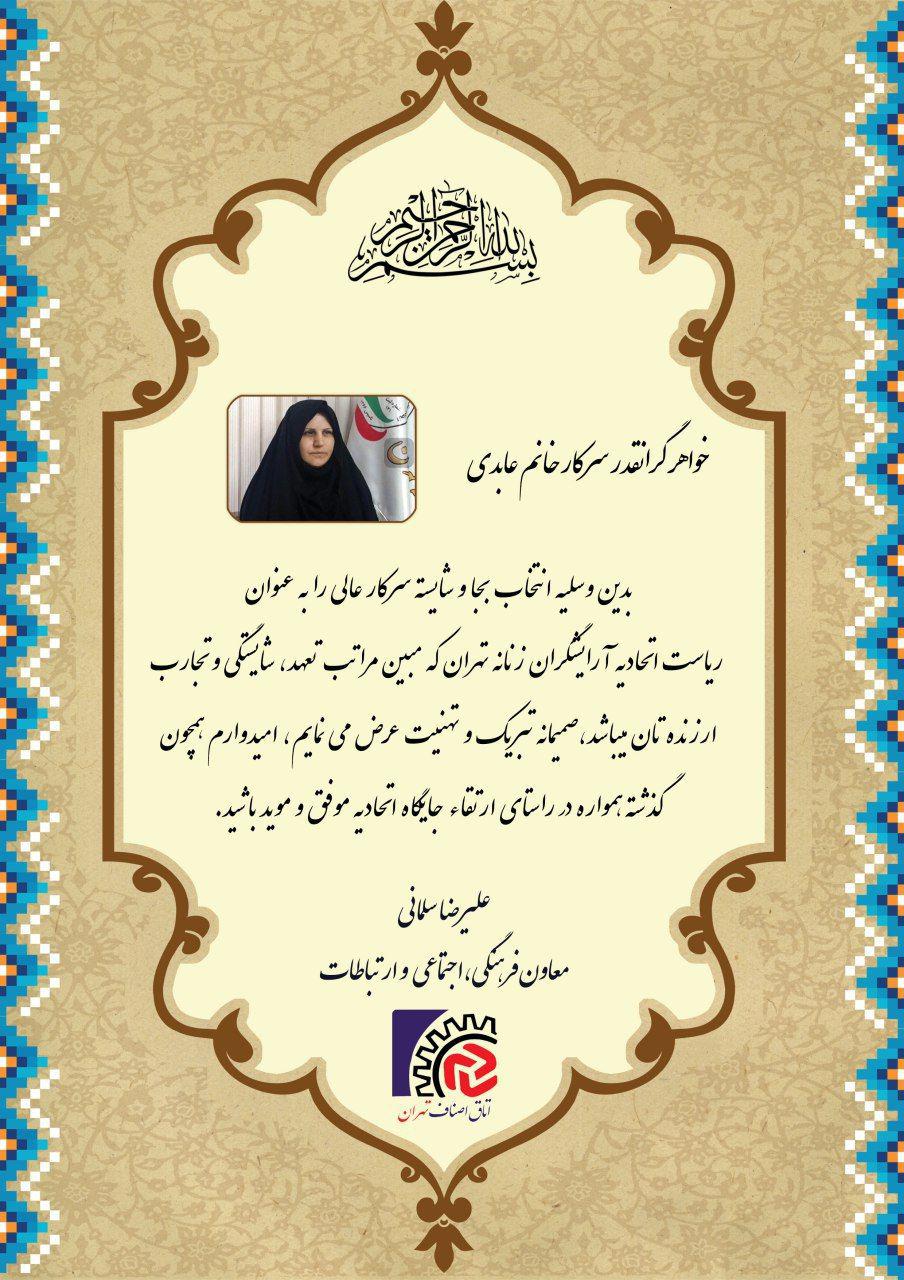 بسم الله الرحمن الرحیم
خواهر گرانقدر سرکار خانم عابدی
بدین وسلیه انتخاب بجا و شایسته سرکار عالی را به عنوان
ریاست اتحادیه آرایشگران زنانه تهران که مبین مراتب تعهد، شایستگی و تجارب
ارزنده تان میباشد، صمیمانه تبریک و تهنیت عرض می نمایم، امیدوارم همچون
گذشته همواره در راستای ارتقاء جایگاه اتحادیه موفق و موید باشید.
علیرضا سلمانی
معاون فرهنگی، اجتماعی و ارتباطات
اتاق اصناف تهران